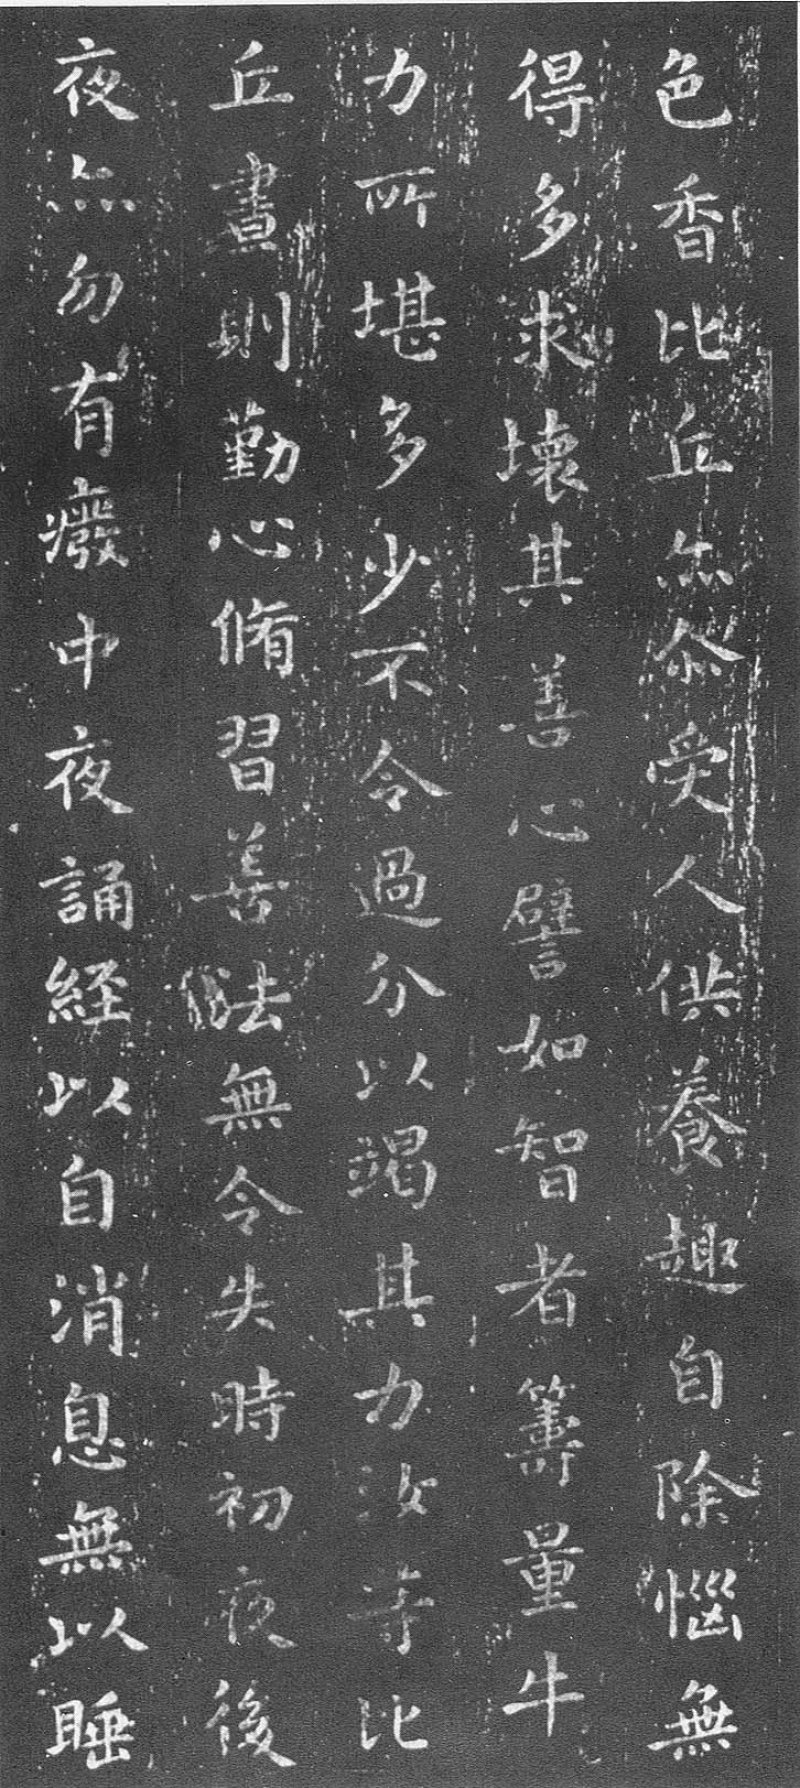 色香比丘亦尒受人供養趣自除惱無
得多求壞其善心譬如智者籌量牛
力所堪多少不令過分以竭其力汝等比
丘晝則勤心脩習善法無令失時初夜後
夜亦勿有癈中夜誦經以自消息無以睡